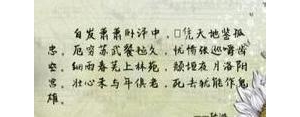 白发萧萧卧泽中,凭天地鉴孤
忠。厄穷苏武餐毡久,忧愤张巡嚼齿
空。细雨春芜上林苑,颓垣夜月洛阳
宫。壮心未与年俱老,死去犹能作鬼
雄。
——陆游